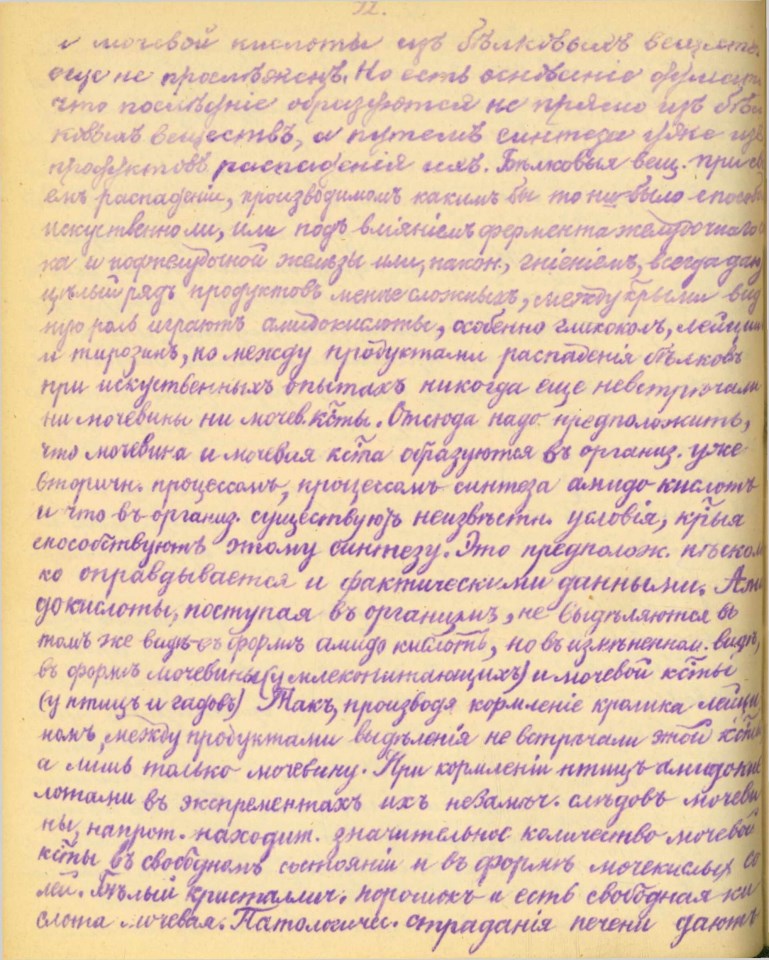 12.
и мочевой кислоты изъ бѣлковыхъ веществъ
еще не прослѣженъ. Но есть основаніе думать,
что послѣдніе образуются не прямо изъ бѣл
ковыхъ веществъ, а путемъ синтеза уже изъ
продуктовъ распаденія ихъ. Бѣлковыя вещ. при сво
емъ распаденіи, производимомъ какимъ бы то ни было способ
искуственно ли, или подъ вліяніемъ фермента желудочнаго со
ка и поджелудочной железы или, након., гніеніемъ, всегда даю
цѣлый рядъ продуктовъ менѣе сложныхъ, между к̃рыми вид
ную роль играютъ амидокислоты, особенно гликоколъ, лейцинъ
и тирозинъ, но между продуктами распаденія бѣлковъ
при искуственныхъ опытахъ никогда еще невстрѣчали
ни мочевины ни мочев. к̃ты. Отсюда надо предположить,
что мочевина и мочевая к̃та образуются въ организ. уже
вторичн. процессомъ, процессомъ синтеза амидо кислотъ
и что въ организ. существуютъ неизвѣстн. условія, к̃рыя
способствуютъ этому синтезу. Это предполож. нѣсколь
ко оправдывается и фактическими данными. Ами
докислоты, поступая въ организмъ, не выдѣляются въ
томъ же видѣ въ формѣ амидо кислотъ, но въ измѣненном. видѣ,
въ формѣ мочевины (у млекопитающихъ) и мочевой к̃ты
(у птицъ и гадовъ) Такъ, производя кормленіе кролика лейци
номъ, между продуктами выдѣленія не встрѣчали этой к̃ты
а лишь только мочевину. При кормленіи птицъ амидокис
лотами въ экспрементахъ ихъ незамѣч. слѣдовъ мочеви
ны, напрот. находит. значительное количество мочевой
к̃ты въ свободномъ состояніи и въ формѣ мочекислыхъ со
лей. Бѣлый кристаллич. порошокъ и есть свободная ки
слота мочевая. Патологичес. страданія печени даютъ